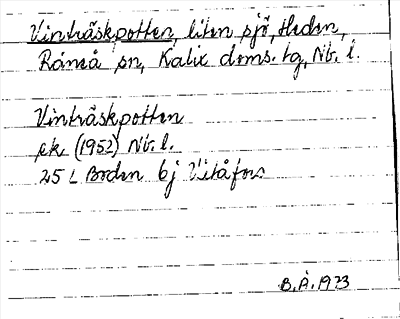 Vinträskpotten, liten sjö, Heden,
Råneå sn, Kalix doms. tg, Nb. l.
Vinträskpotten
ek. (1952) Nb. l.
25 L Boden 6j Vitåfors
B.Å. 1973